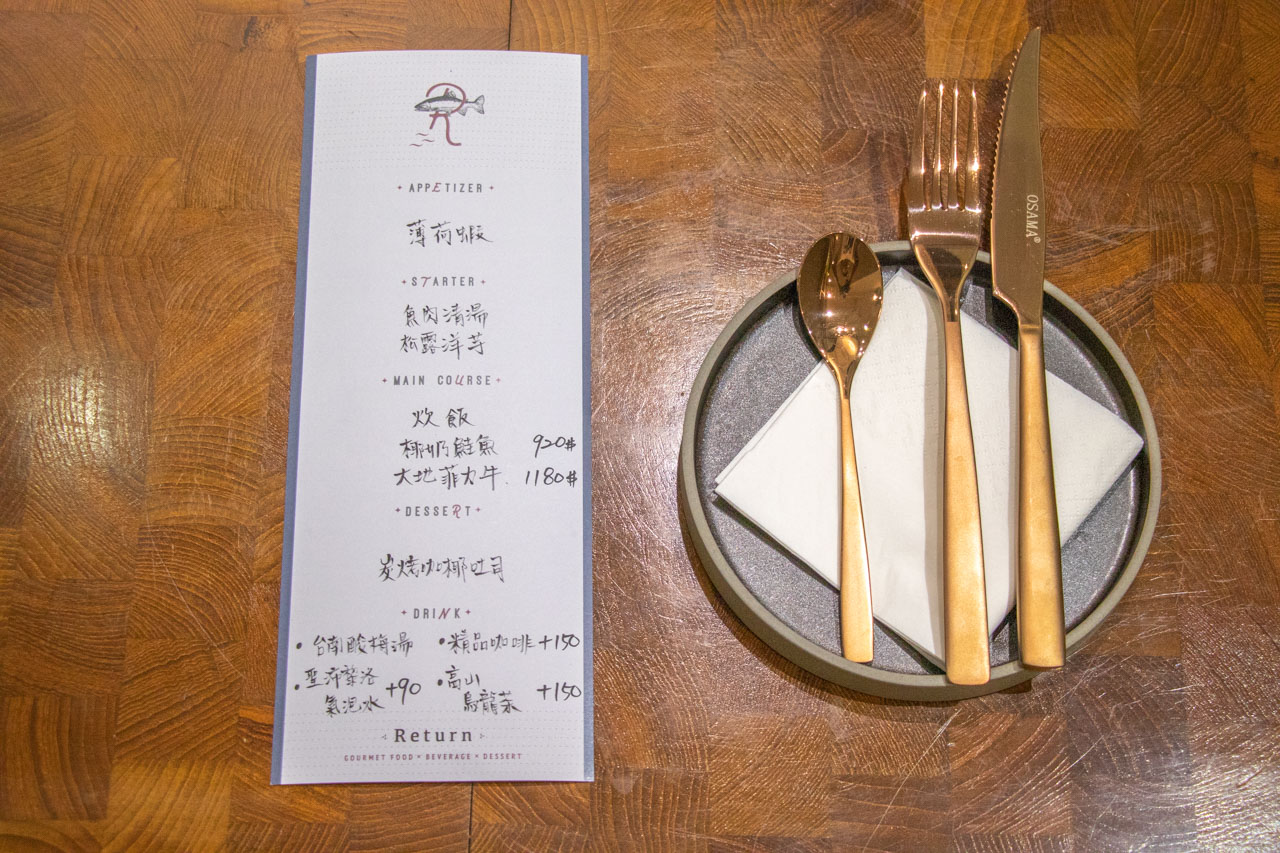 R
APPETIZER
薄荷蝦
STARTER
魚肉清湯
松露洋芋
MAIN COURSE
炊飯
椰奶鮭魚 920#
大地菲力牛. 1180#
DESSERT
炭烤咖椰吐司
DRINK
• 台南酸梅湯 • 精品咖啡 +150
• 聖沛黎洛 氣泡水 +90 • 高山 烏龍茶 +150
Return
GOURMET FOOD • BEVERAGE • DESSERT
OSAMA®